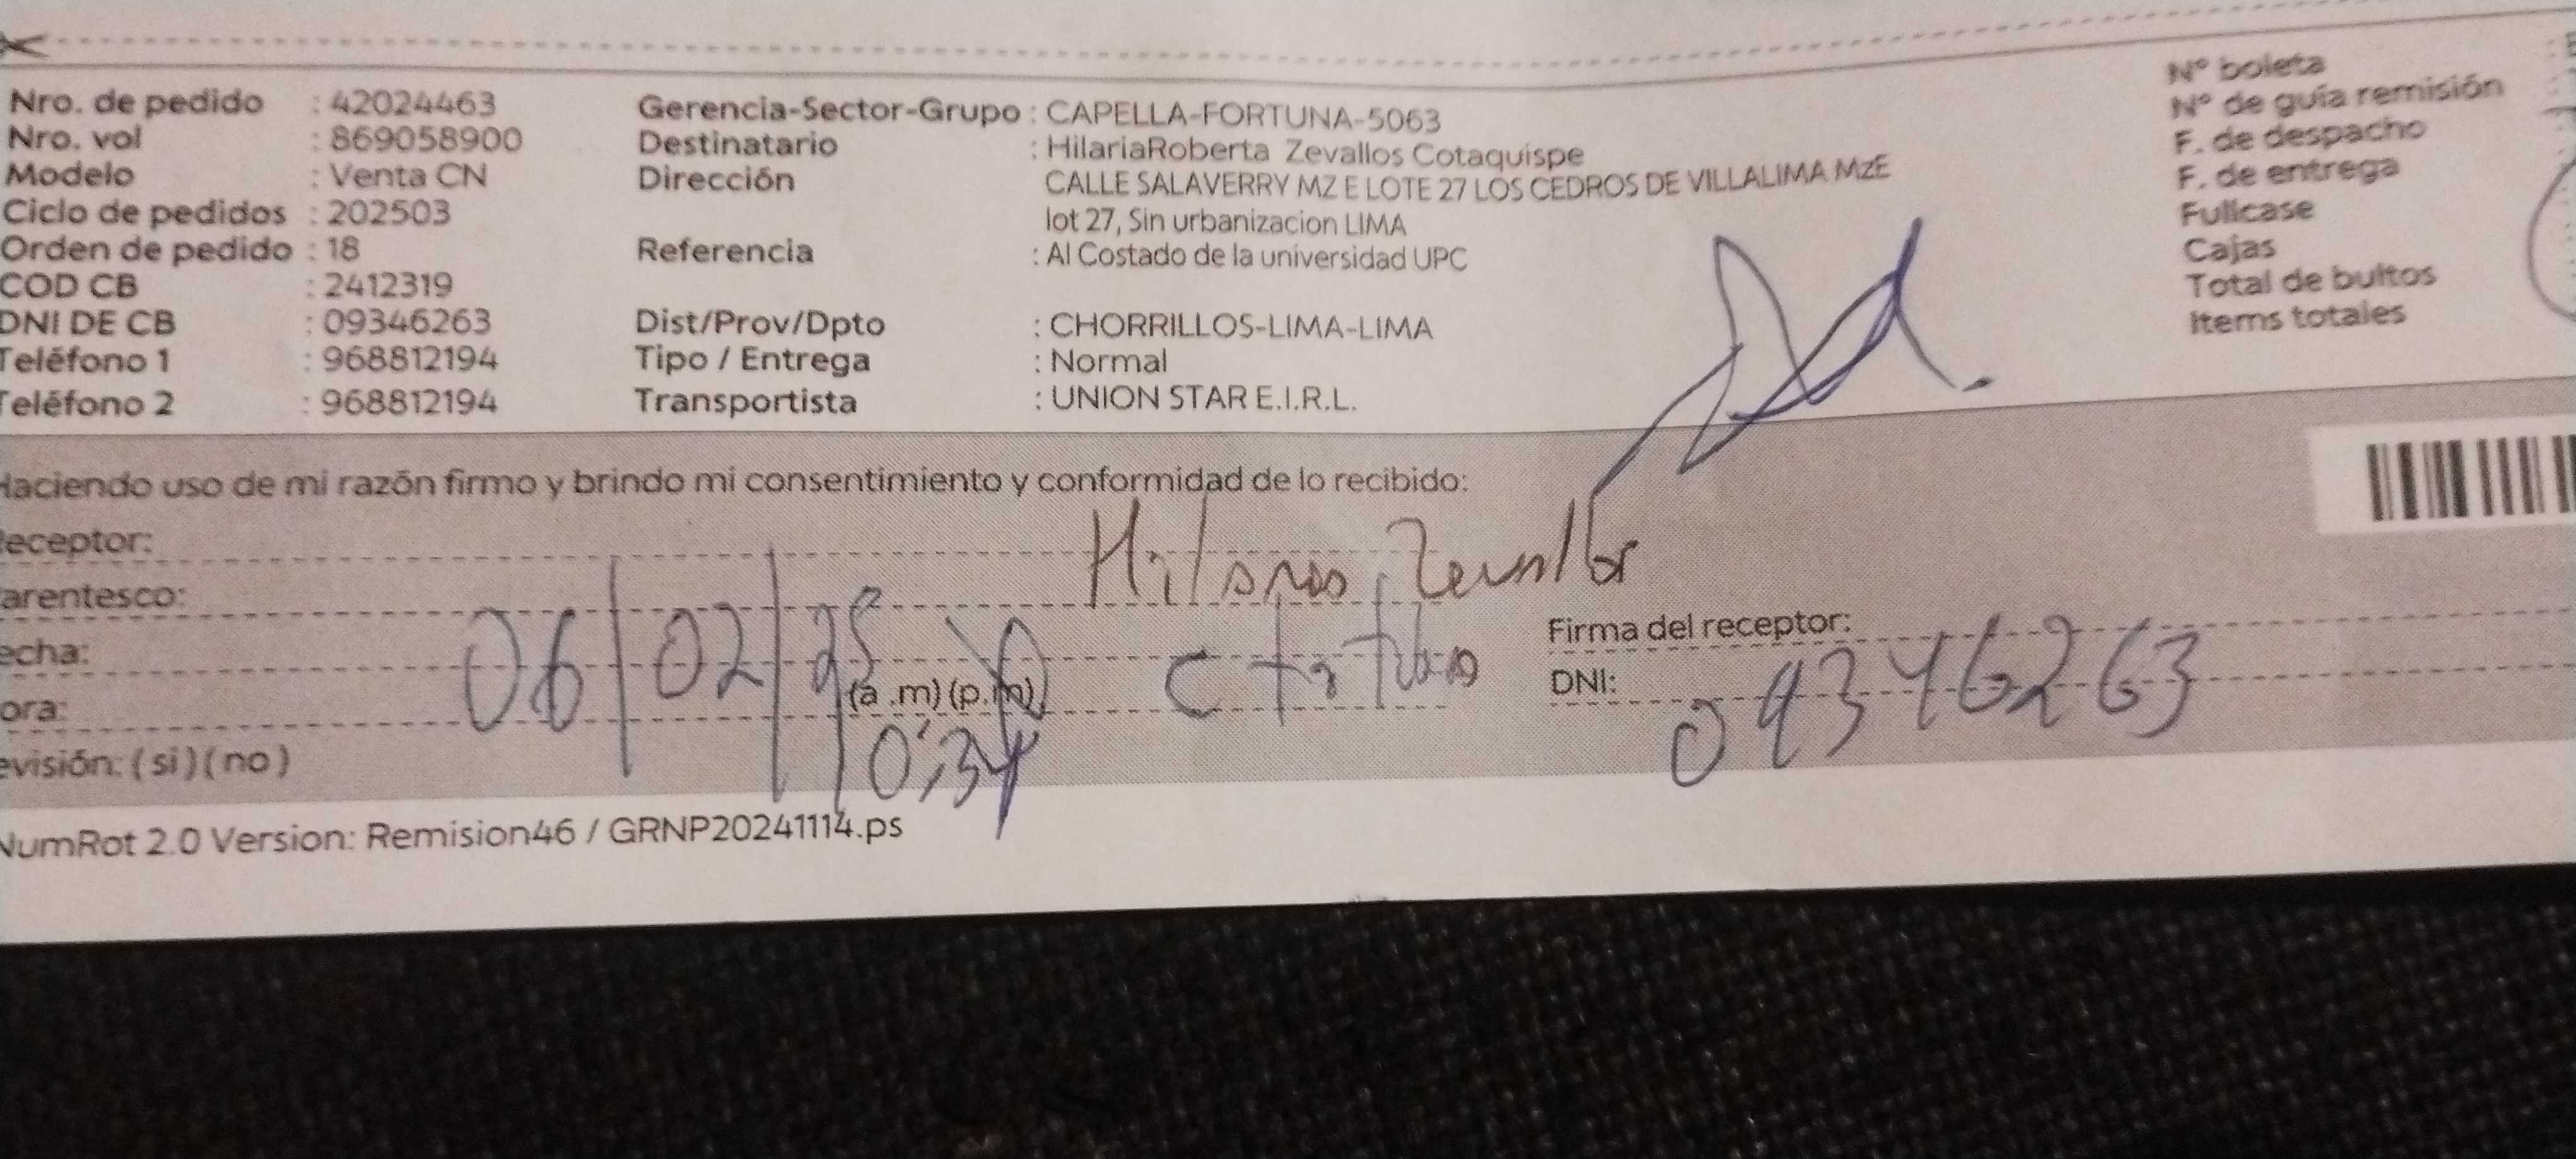 Nro. de pedido : 42024463
Nro. vol : 869058900
Modelo : Venta CN
Ciclo de pedidos : 202503
Orden de pedido : 18
COD CB : 2412319
DNI DE CB : 09346263
Teléfono 1 : 968812194
Teléfono 2 : 968812194
Gerencia-Sector-Grupo : CAPELLA-FORTUNA-5063
Destinatario : HilariaRoberta Zevallos Cotaquispe
Dirección CALLE SALAVERRY MZ E LOTE 27 LOS CEDROS DE VILLALIMA MzE
lot 27, Sin urbanizacion LIMA
Referencia : Al Costado de la universidad UPC
Dist/Prov/Dpto : CHORRILLOS-LIMA-LIMA
Tipo / Entrega : Normal
Transportista : UNION STAR E.I.R.L.
N° boleta
N° de guía remisión
F. de despacho
F. de entrega
Fullcase
Cajas
Total de bultos
Items totales
Haciendo uso de mi razón firmo y brindo mi consentimiento y conformidad de lo recibido:
Receptor:
arentesco:
echa: 06/02/25
ora: (a .m) (p.m)
evisión: ( si ) ( no )
Firma del receptor:
DNI: 09346263
NumRot 2.0 Version: Remision46 / GRNP20241114.ps